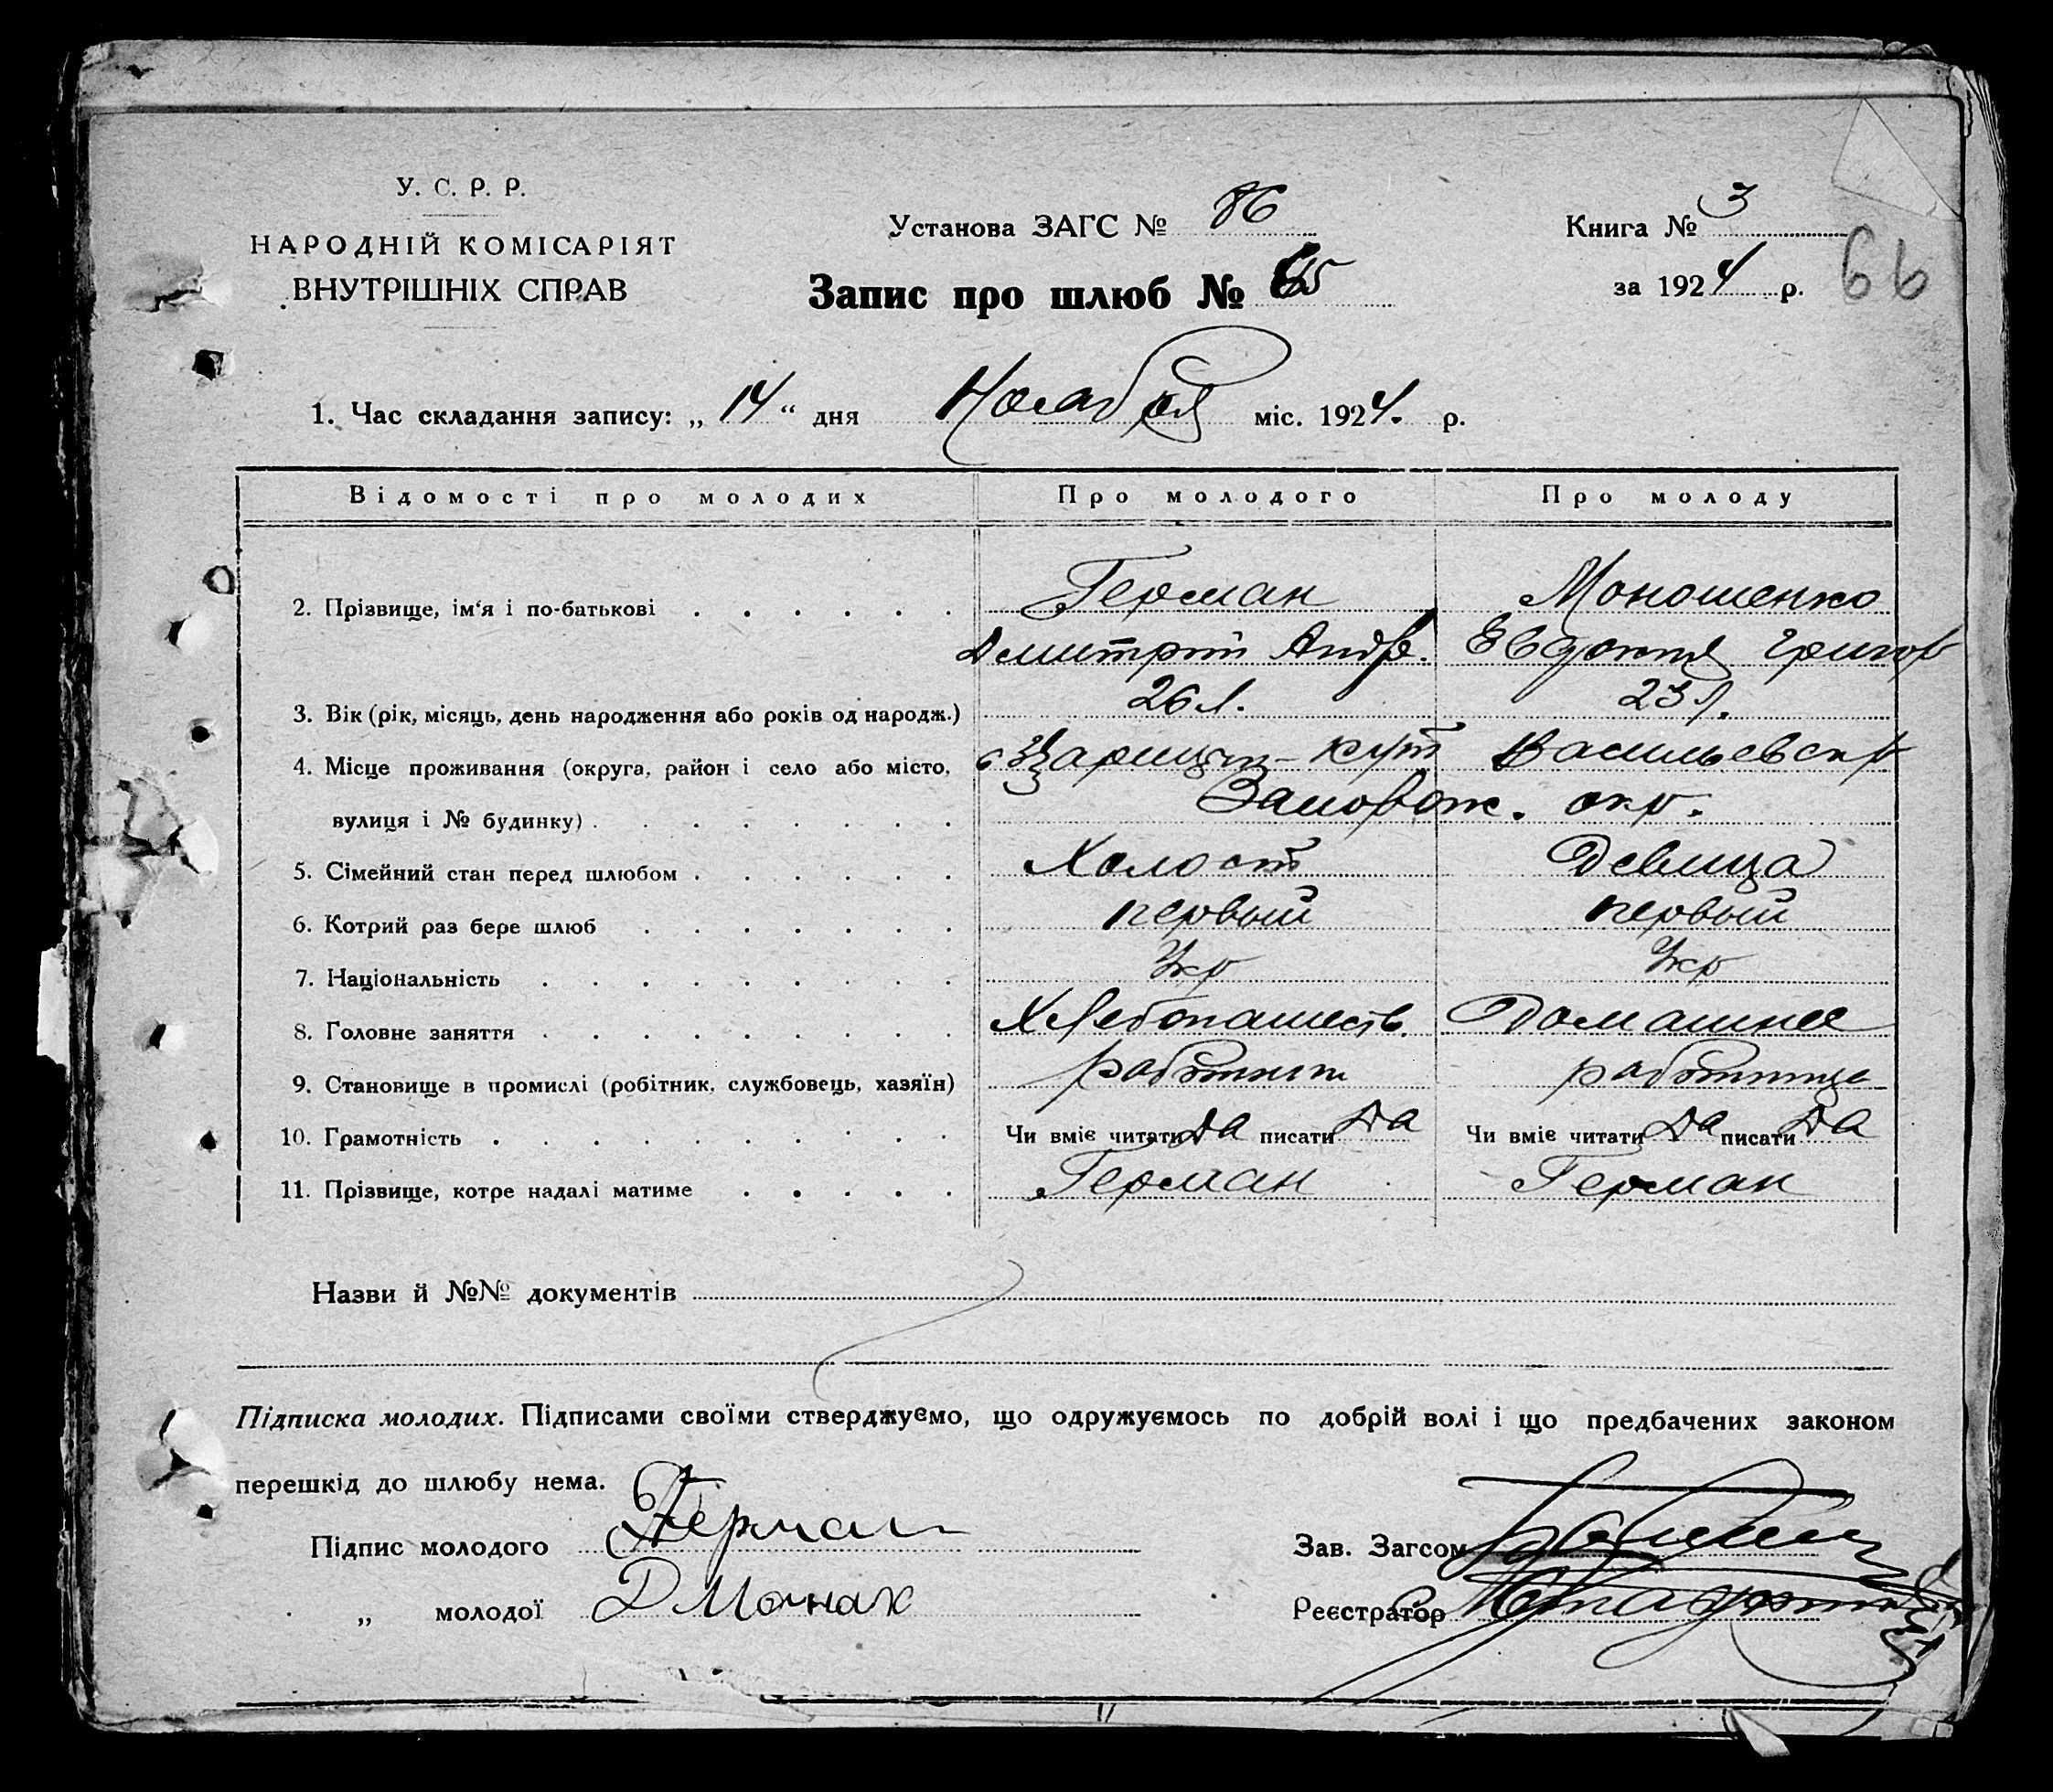 У. С. Р. Р.
НАРОДНІЙ КОМІСАРІЯТ
ВНУТРІШНІХ СПРАВ
Установа ЗАГС № 86
Запис про шлюб № 65
Книга № 3
за 1924 р.
66
1. Час складання запису: „ 14 “ дня Ноября міс. 1924. р.
Відомості про молодих Про молодого Про молоду
2. Прізвище, ім‘я і по-батькові Герман Моношенко
Дмитрий Андр. Евдокия Григор
3. Вік (рік, місяць, день народження або років од народж.) 26 л. 23 л.
4. Місце проживання (округа, район і село або місто, с Царицын-Кут Васильевск р
вулиця і № будинку) Запорож. окр.
5. Сімейний стан перед шлюбом Холост Девица
6. Котрий раз бере шлюб первый первый
7. Національність Укр Укр
8. Головне заняття Хлебопашеств. Домашнее
9. Становище в промислі (робітник, службовець, хазяїн) работник работница
10. Грамотність Чи вміє читати Да писати Да Чи вміє читати Да писати Да
11. Прізвище, котре надалі матиме Герман Герман
Назви й №№ документів
Підписка молодих. Підписами своїми стверджуємо, що одружуємось по добрій волі і що предбачених законом
перешкід до шлюбу нема.
Підпис молодого Герман
„ молодої Д Монах
Зав. Загсом
Реєстратор